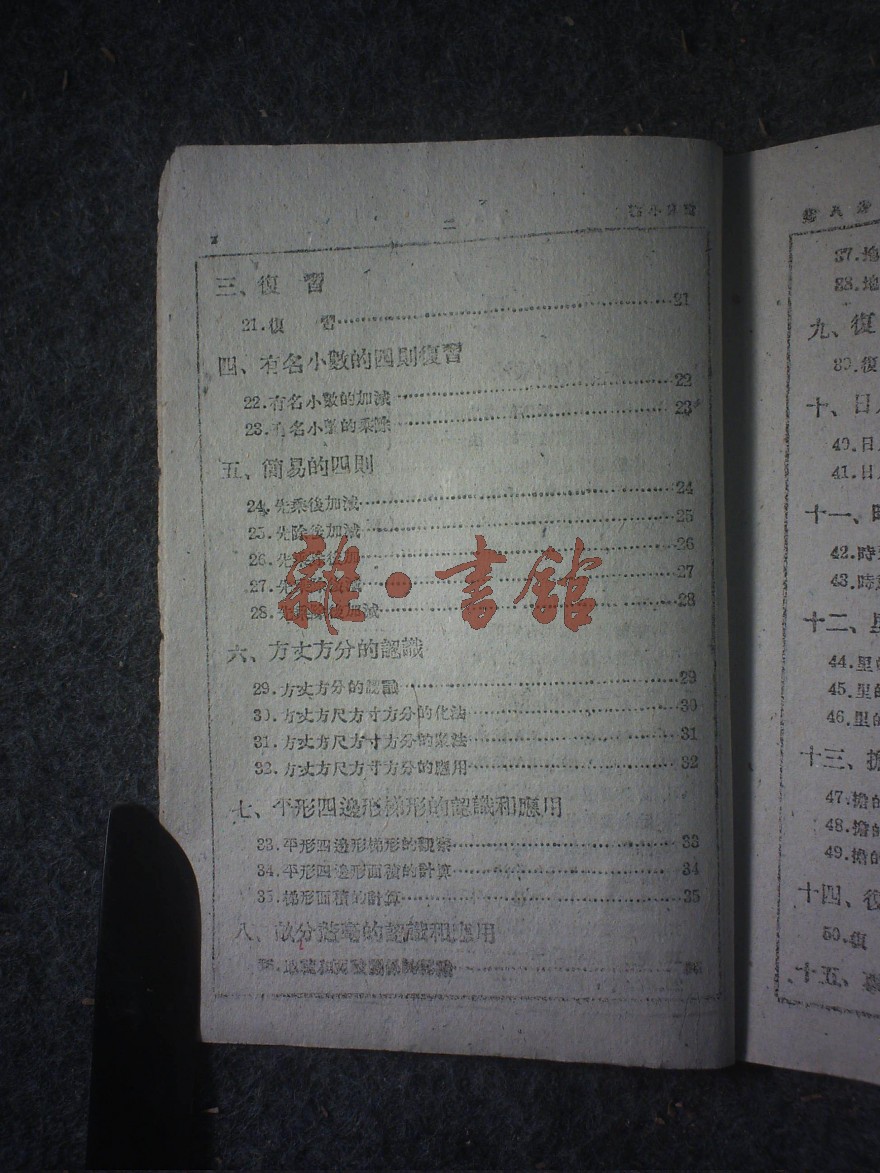 二
三、復 習
21.復 習 21
四、有名小數的四則復習
22.有名小數的加減 22
23.有名小數的乘除 23
五、簡易的四則
24.先乘後加減 24
25.先除後加減 25
26. 26
27. 27
28.先乘除後加減 28
雜·書館
六、方丈方分的認識
29.方丈方分的認識 29
30.方丈方尺方寸方分的化法 30
31.方丈方尺方寸方分的聚法 31
32.方丈方尺方寸方分的應用 32
七、平形四邊形梯形的認識和應用
33.平形四邊形梯形的觀察 33
34.平形四邊形面積的計算 34
35.梯形面積的計算 35
八、畝分釐毫的認識和應用
第八冊
37.地
38.地
九、復
39.復
十、日
40.日
41.日
十一、時
42.時
43.時
十二、里
44.里的
45.里的
46.里的
十三、擔
47.擔的
48.擔的
49.擔的
十四、復
50.復
十五、